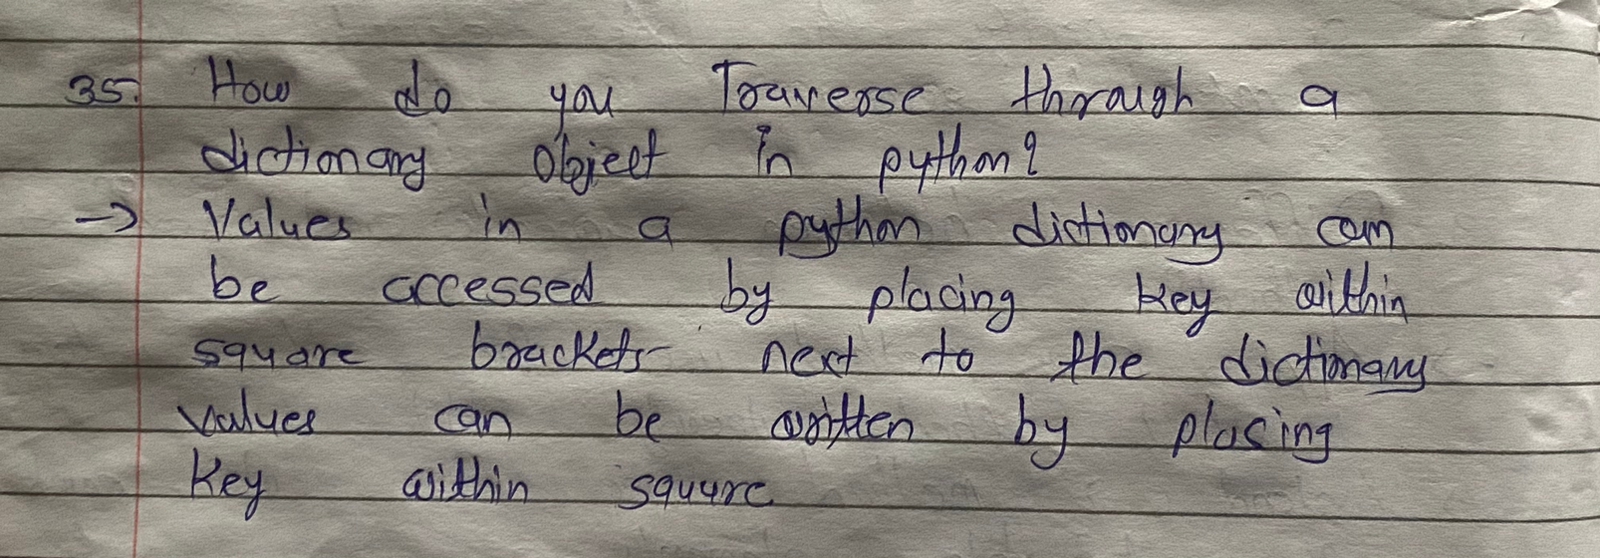 35. How do you Traverse through a
dictionary object in python?
→ Values in a python dictionary can
be accessed by placing key within
square brackets next to the dictionary
values can be written by plasing
key within square